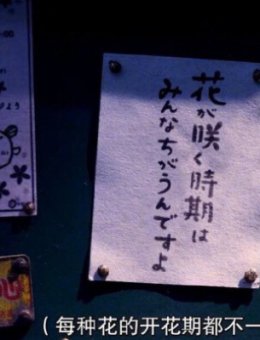 花が咲く時期は
みんなちがうんですよ
（每种花的开花期都不一